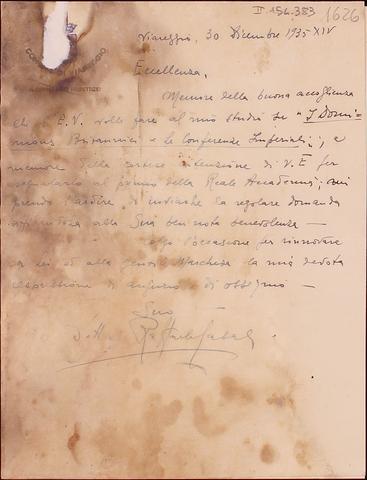 II 154.383 1626
Viareggio, 30 Dicembre 1935-XIV
Eccellenza,
Memore della buona accoglienza
che E.V. volle fare al mio studio su "I Domi=
nions Britannici e le Conferenze Imperiali", e
memore della intenzione di V.E per
al premio della Reale Accademia,
prendo l'ardire di la regolare domanda
alla Sua ben nota benevolenza —
l'occasione per rinnovare
a Lei ed alla Marchesa la mia devota
espressione di augurio e di ossequio —
Suo